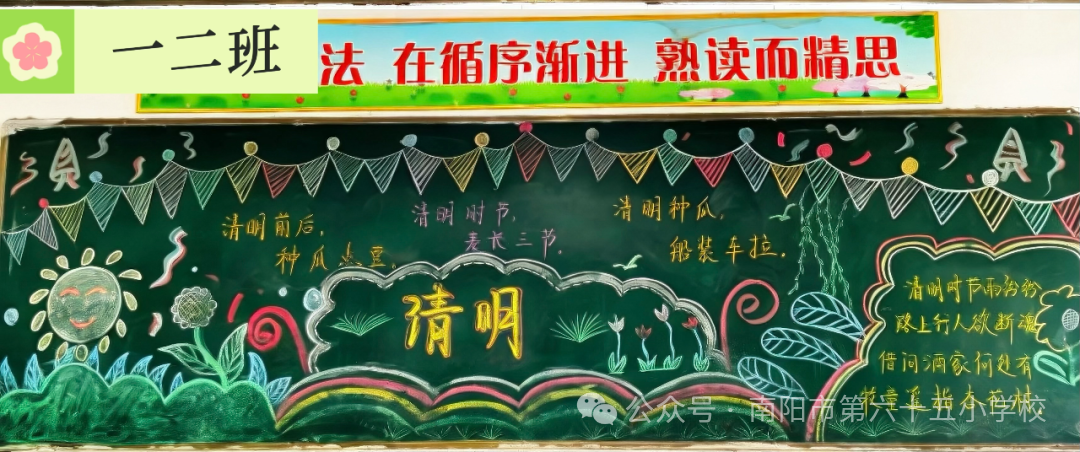 一二班
法 在循序渐进 熟读而精思
清明前后,
种瓜点豆.
清明时节,
麦长三节.
清明种瓜,
船装车拉.
清明
清明时节雨纷纷
路上行人欲断魂
借问酒家何处有
牧童遥指杏花村.
公众号·南阳市第六十五小学校